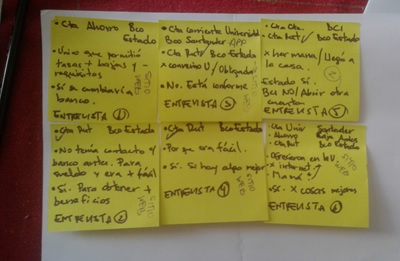 • Cta Ahorro Bco
Estado
• Unico que permitió
tasas + bajas y -
requisitos
• Sí se cambiaría
banco.
ENTREVISTA 1
SITIO
WEB
• Cta Corriente Universidad
Bco Santander APP
• Cta Rut/ Bco Estado
x convenio U/ Obligador
• No. Está conforme
ENTREVISTA 3
• Cta Cte. BCI
• Cta Rut/ Bco Estado
• x hermana/ Llegó a
la casa.
Estado Sí.
BCI NO/ Abrir otra
cuenta
ENTREVISTA 5
• Cta Rut Bco Estado
• No tenía contacto y
banco antes. Para
sueldo y era + fácil
• Sí. Para obtener +
beneficios
ENTREVISTA 2
SITIO
WEB
• Cta Rut Bco Estado
• Porque era fácil.
• Sí. Si hay algo mejor
ENTREVISTA 4
SITIO
WEB
• Cta Univ Santander
• Ahorro
• Cta Rut Bco Estado
• Ofrecieron en la U.
x internet
• Mamá
• Sí. x cosas mejores
ENTREVISTA 6
SITIO
WEB